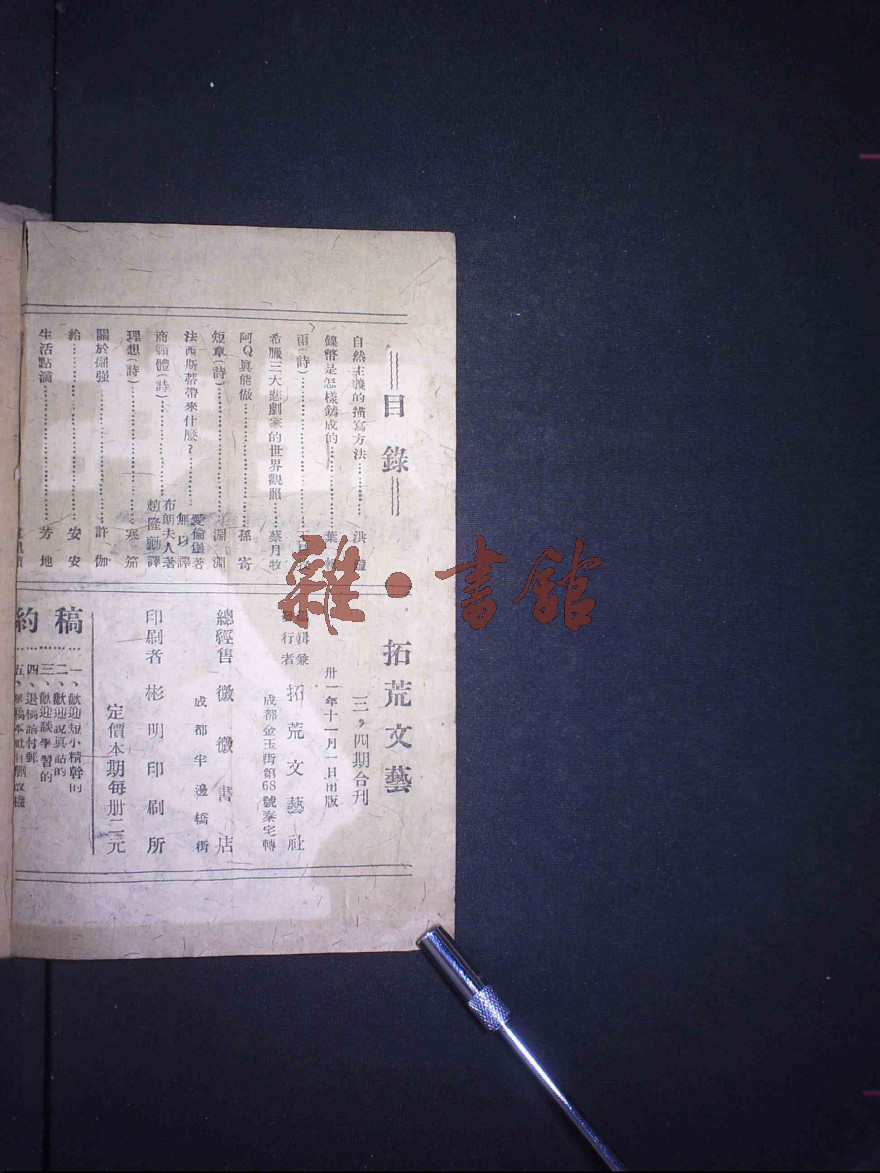 目錄
自然主義的描寫方法…………洪
鎳幣是怎樣鑄成的…………葉
雨(詩)…………
希臘三大悲劇家的世界觀照……蔡月牧
阿Q眞能做…………孫寄
短章(詩)…………淵淵
法西斯蒂帶來什麼?……愛倫堡著 無以譯
商籟體(詩)…………布朗夫人著 趙隆勷譯
理想(詩)…………寒笳
關於倔强…………許伽
給…………安安
生活點滴…………芳地
拓荒文藝
三,四期合刊
卅一年十一月一日出版
編輯兼發行者 拓荒文藝社
成都金玉街第68號秦宅轉
總經售 微微書店
成都半邊橋街
印刷者 彬明印刷所
定價本期每册二元
稿約
一、歡迎短小精幹的
二、歡迎説眞話的
三、歡迎談學習的
四、退稿請付郵
五、
雜·書館